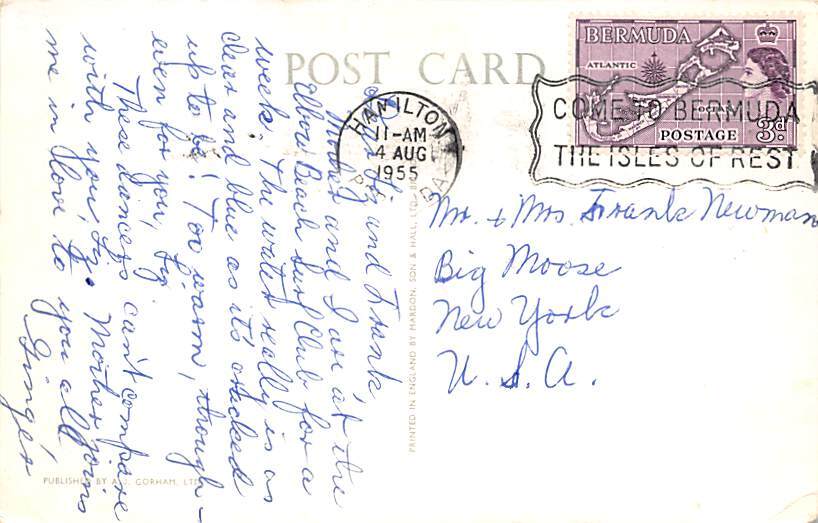 POST CARD
BERMUDA
ATLANTIC
OCEAN
POSTAGE 3d
HAMILTON
11-AM
4 AUG
1955
COME TO BERMUDA
THE ISLES OF REST
Mr. & Mrs. Frank Newman
Big Moose
New York
U. S. A.
and Frank
Mother and I are at the
Elbow Beach Surf Club for a
week. The water really is as
clear and blue as it's cracked
up to be! Too warm, though -
even for you, Ly.
These dancers can't compare
with you, Ly. Mother joins
me in love to you all
Ginger
PRINTED IN ENGLAND BY MARDON, SON & HALL, LTD.
PUBLISHED BY A.J. GORHAM, LTD